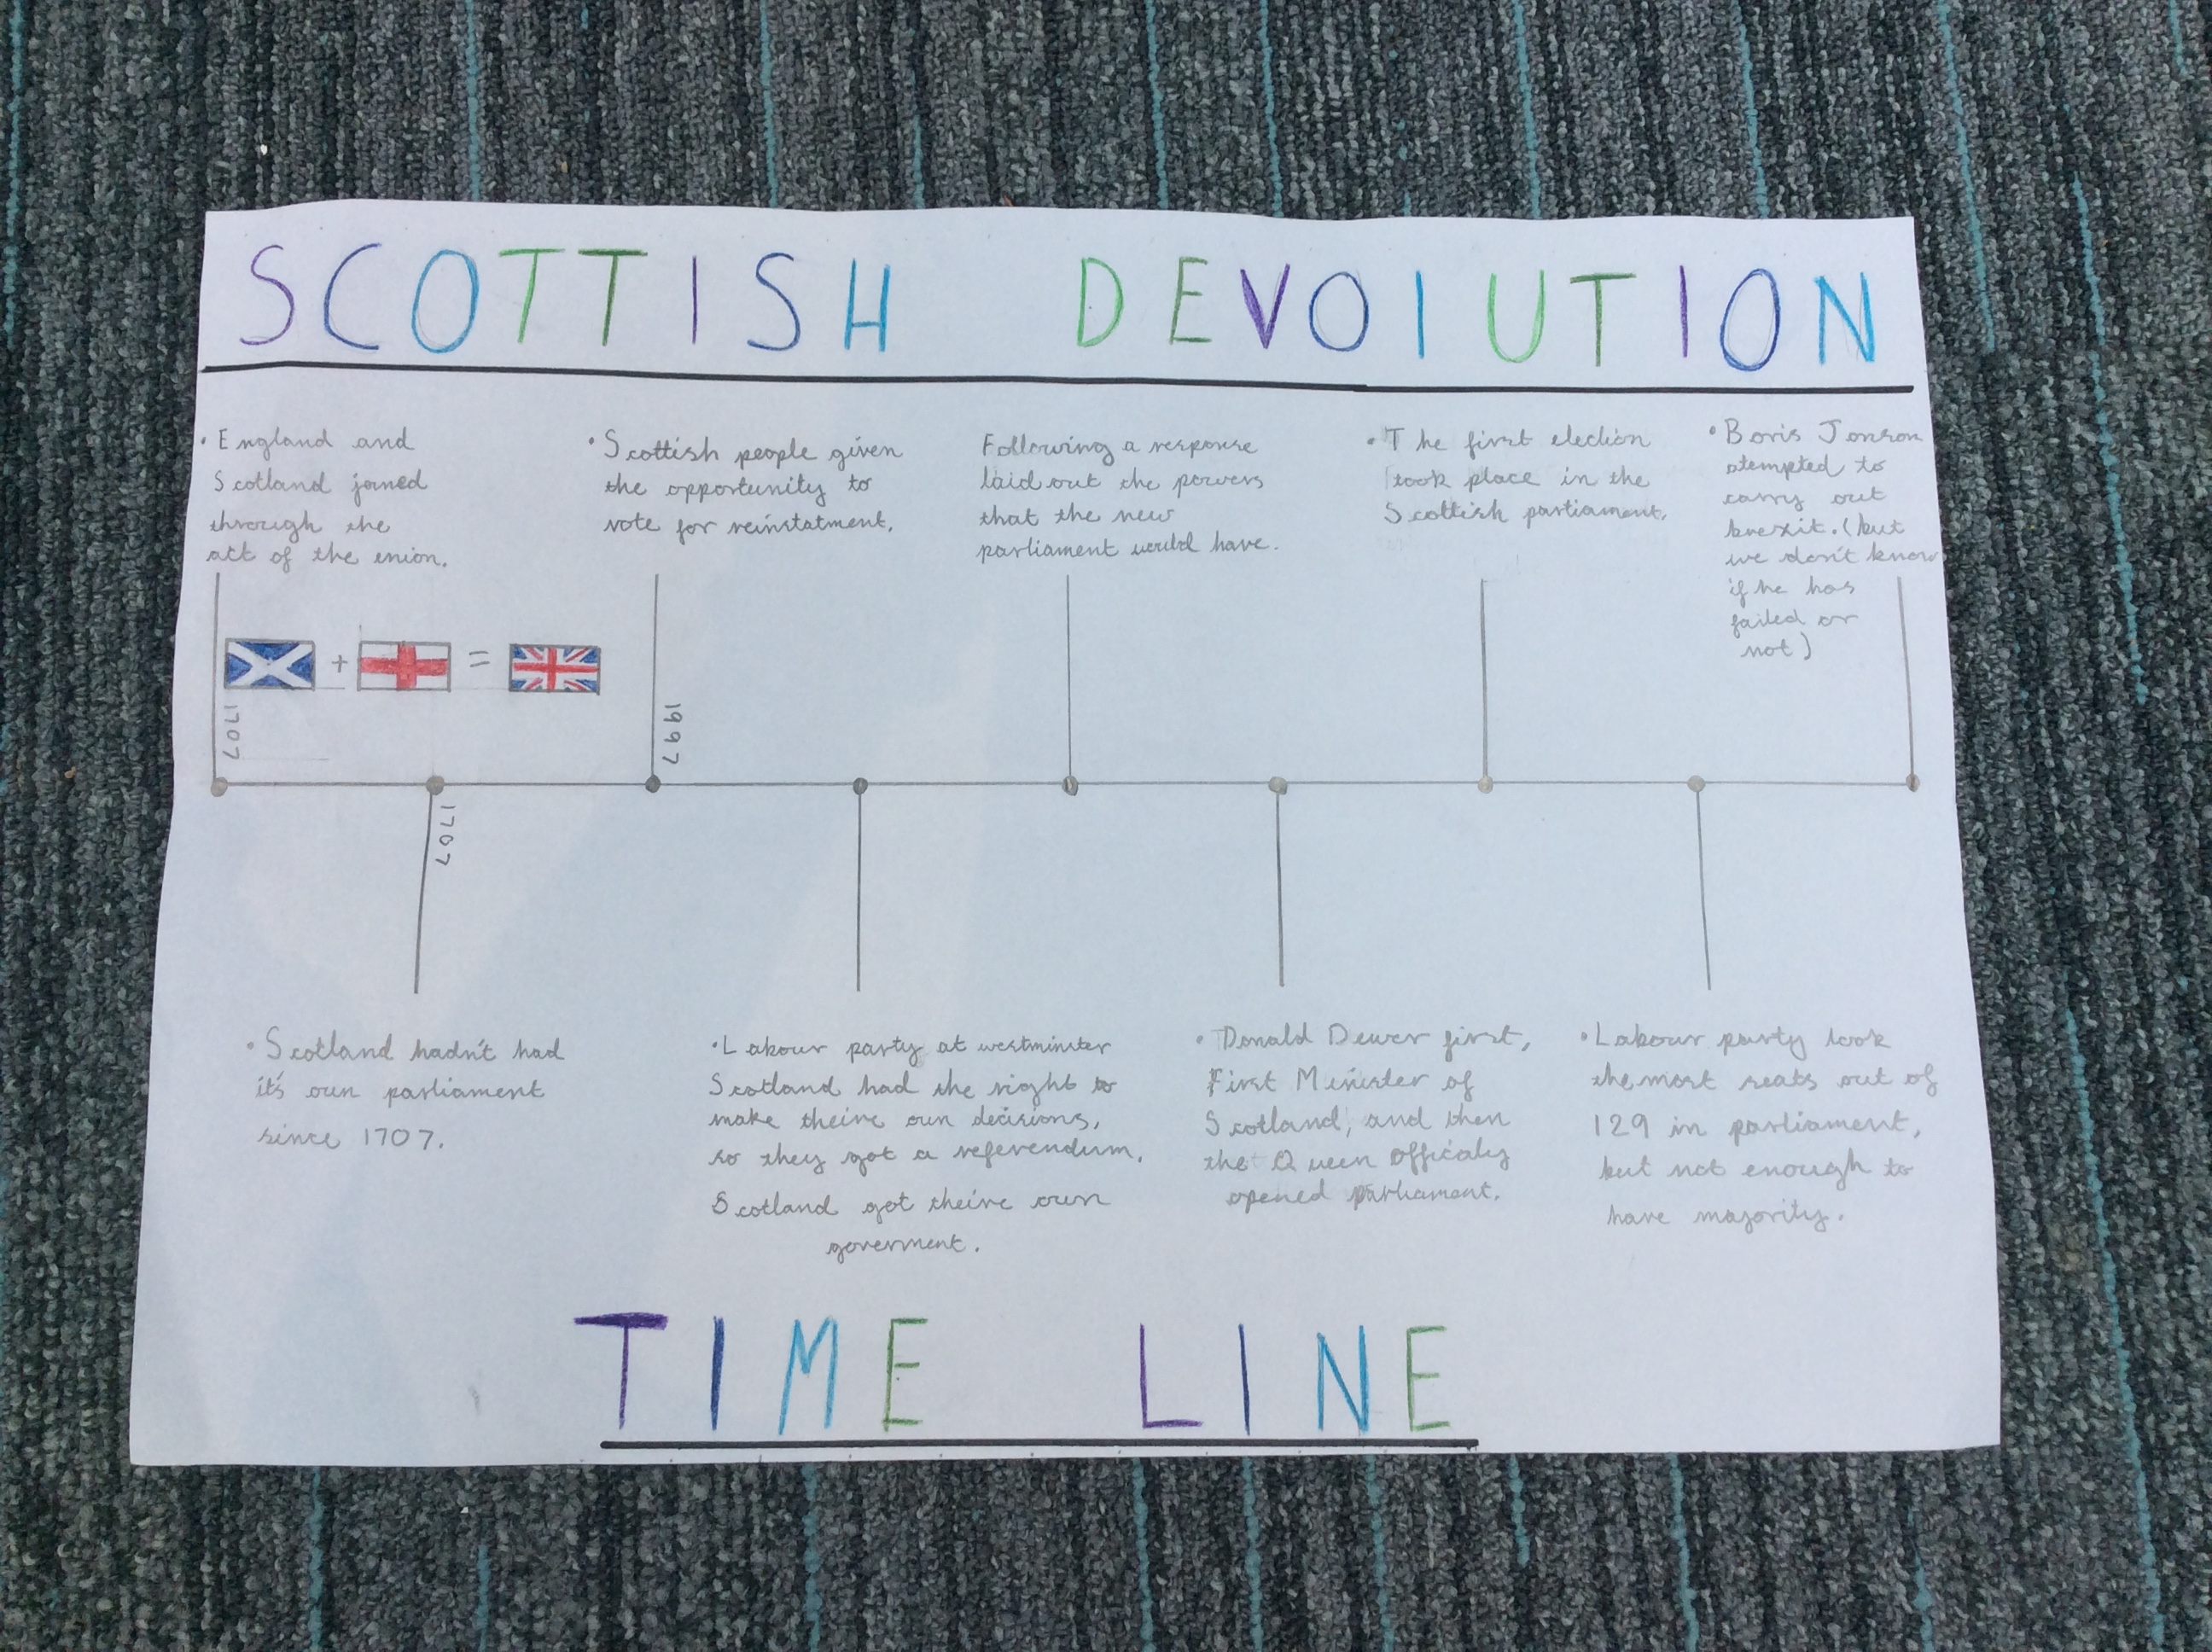 SCOTTISH DEVOlUTION
• England and
Scotland joined
through the
act of the union.
• Scottish people given
the opportunity to
vote for reinstatment.
Following a response
laid out the powers
that the new
parliament would have.
• The first election
took place in the
Scottish parliament.
• Boris Jonson
atempted to
carry out
brexit. (but
we don't know
if he has
failed or
not)
+ =
1707
1997
1707
• Scotland hadn't had
it's own parliament
since 1707.
• Labour party at westminster
Scotland had the right to
make theire own decisions,
so they got a referendum.
Scotland got theire own
goverment.
• Donald Dewer first,
First Minister of
Scotland, and then
the Queen officaly
opened parliament.
• Labour party took
the most seats out of
129 in parliament,
but not enough to
have majority.
TIME LINE